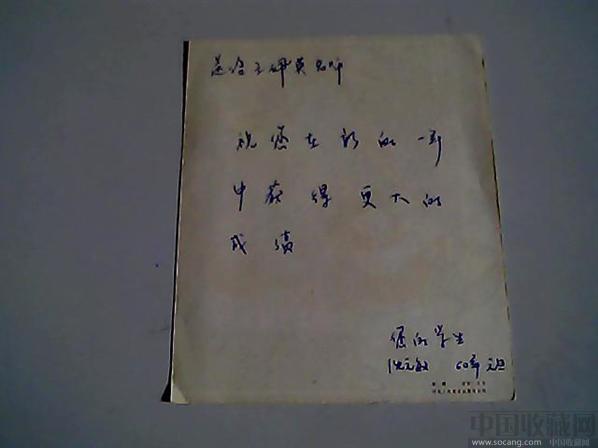 送给王佩英老师
祝您在新的一年
中获得更大的
成绩
您的学生
沈元敏 60年元旦
中国收藏网
www.socang.com 中国收藏网